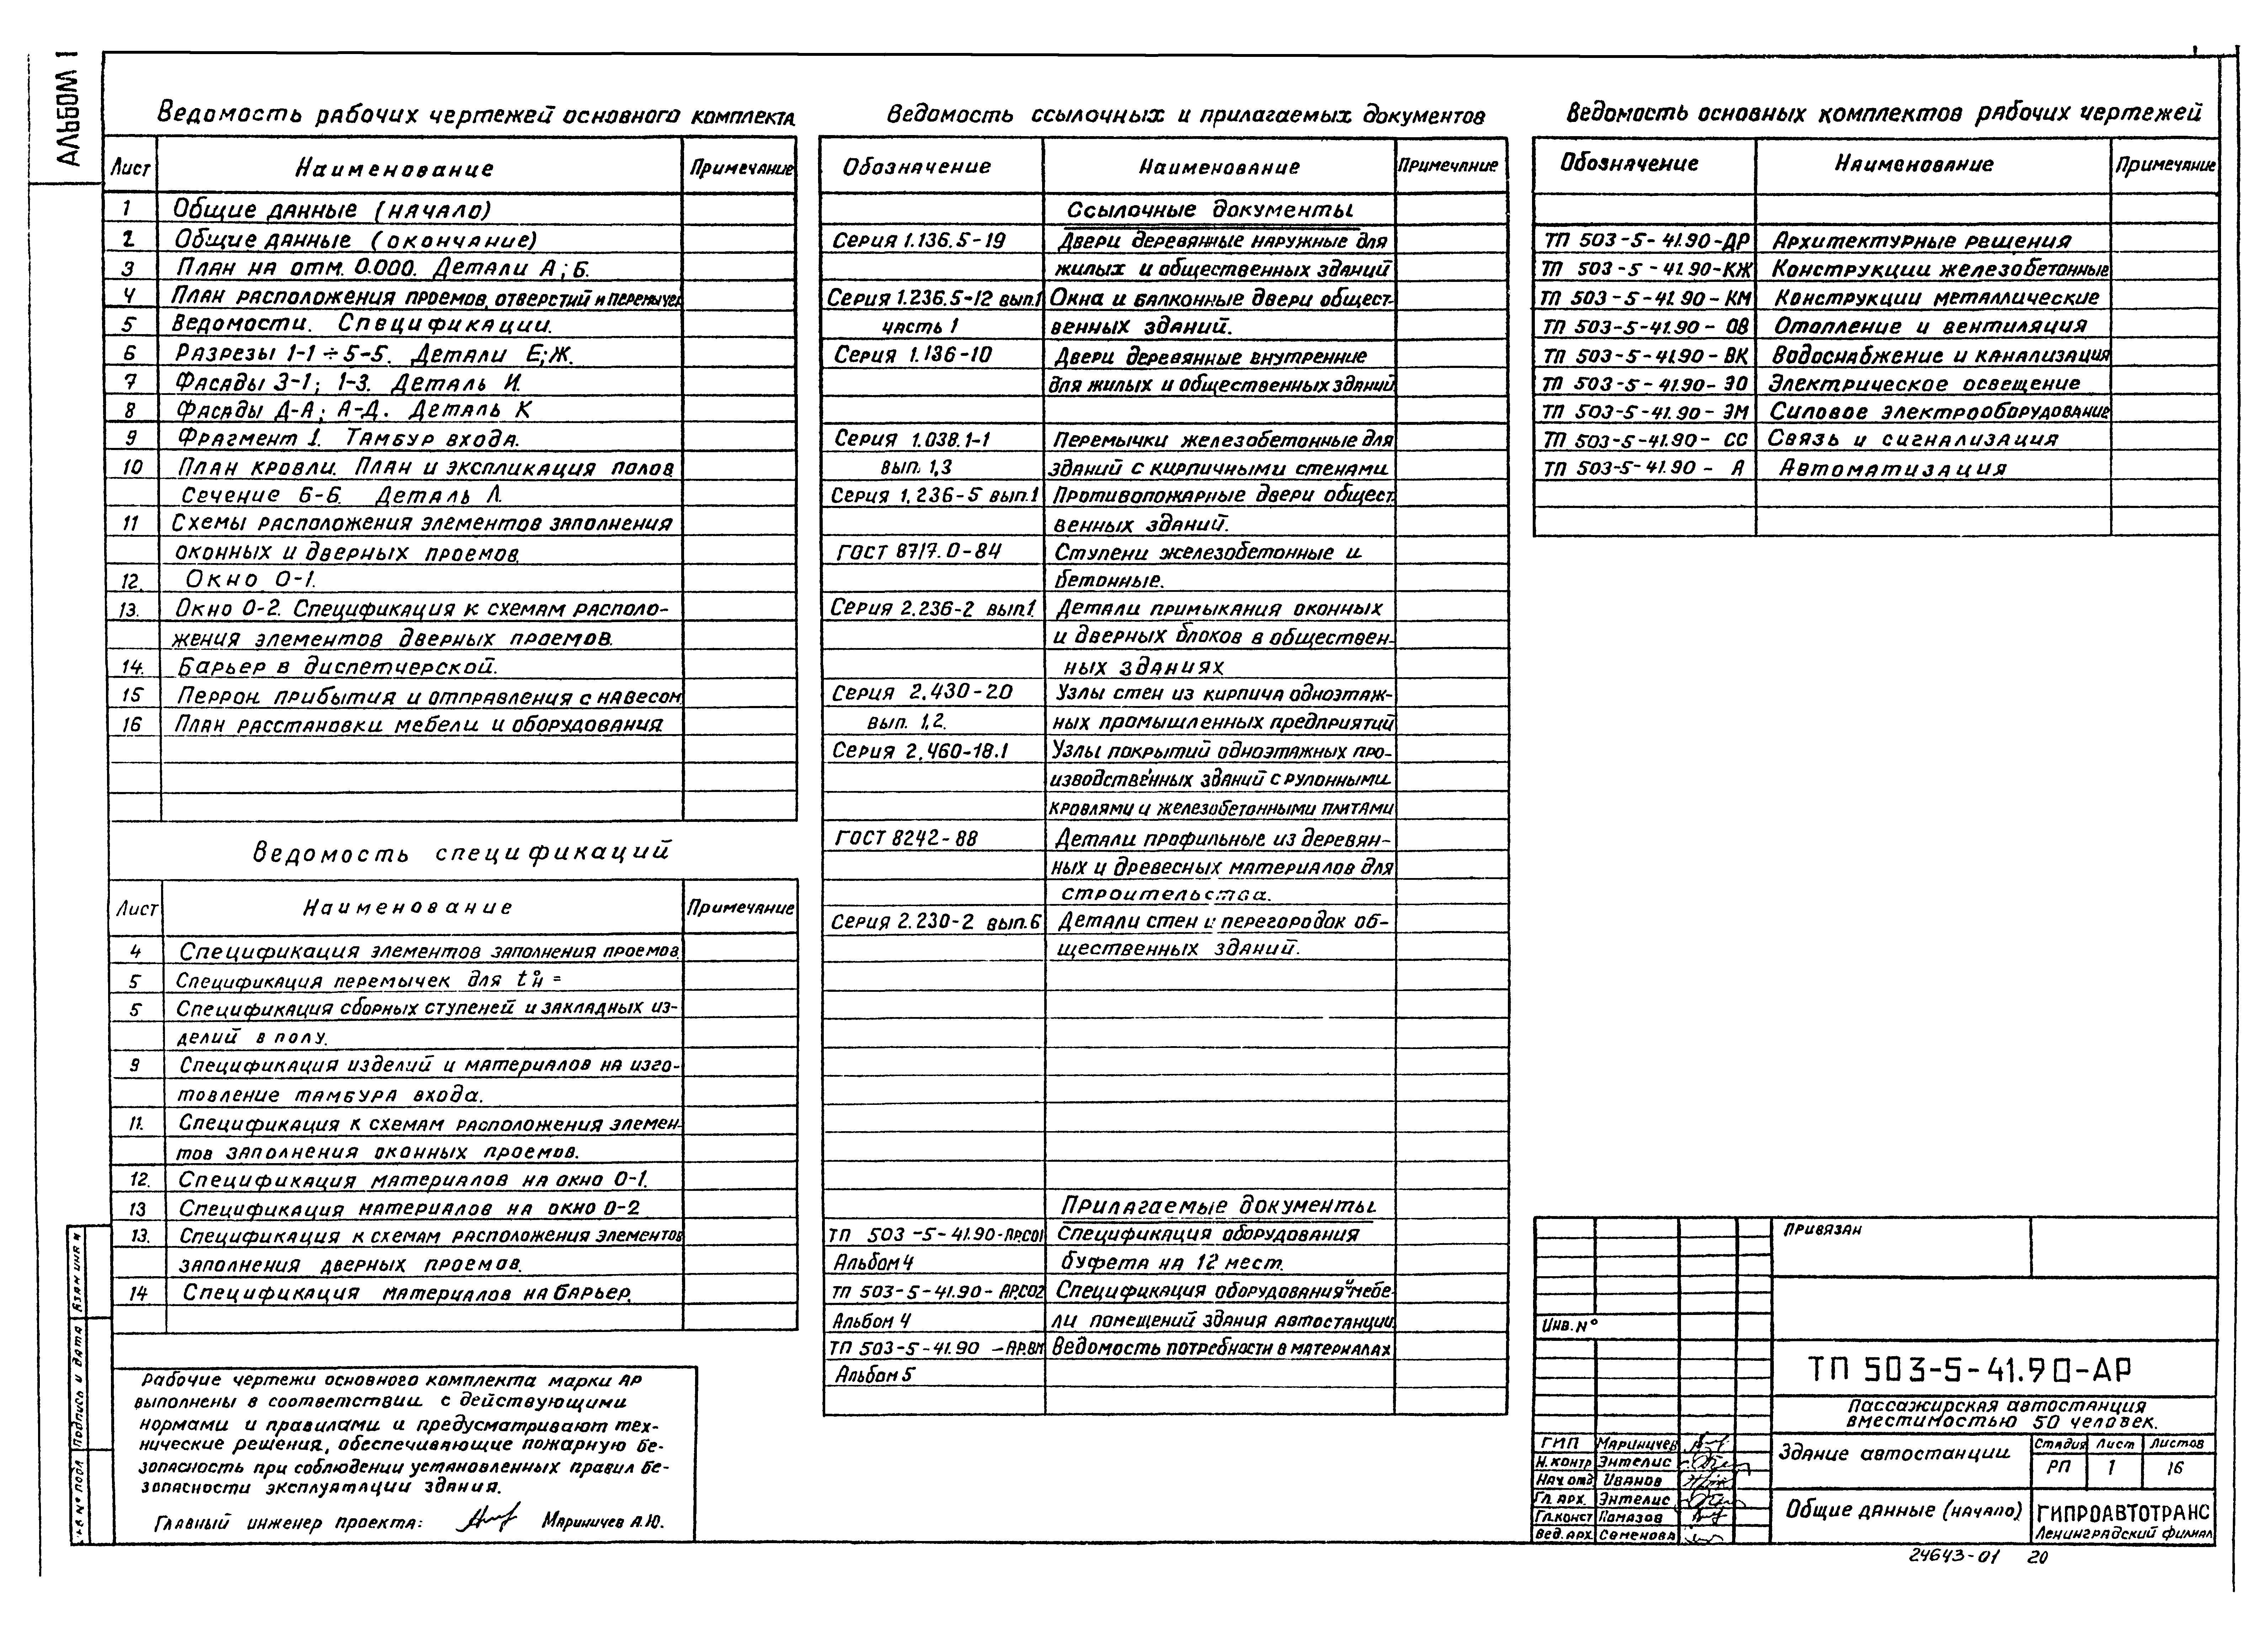 АЛЬБОМ 1
Ведомость рабочих чертежей основного комплекта
Лист Наименование Примечание
1 Общие данные (начало)
2 Общие данные (окончание)
3 План на отм. 0.000. Детали А; Б.
4 План расположения проемов, отверстий и перемычек
5 Ведомости. Спецификации.
6 Разрезы 1-1 ÷ 5-5. Детали Е; Ж.
7 Фасады 3-1; 1-3. Деталь И.
8 Фасады Д-А; А-Д. Деталь К
9 Фрагмент 1. Тамбур входа.
10 План кровли. План и экспликация полов
Сечение 6-6. Деталь Л.
11 Схемы расположения элементов заполнения
оконных и дверных проемов.
12. Окно О-1.
13. Окно О-2. Спецификация к схемам располо-
жения элементов дверных проемов.
14. Барьер в диспетчерской.
15 Перрон прибытия и отправления с навесом
16 План расстановки мебели и оборудования
Ведомость спецификаций
Лист Наименование Примечание
4 Спецификация элементов заполнения проемов
5 Спецификация перемычек для t°н =
5 Спецификация сборных ступеней и закладных из-
делий в полу.
9 Спецификация изделий и материалов на изго-
товление тамбура входа.
11. Спецификация к схемам расположения элемен-
тов заполнения оконных проемов.
12. Спецификация материалов на окно О-1.
13 Спецификация материалов на окно О-2
13. Спецификация к схемам расположения элементов
заполнения дверных проемов.
14 Спецификация материалов на барьер.
Рабочие чертежи основного комплекта марки АР
выполнены в соответствии с действующими
нормами и правилами и предусматривают тех-
нические решения, обеспечивающие пожарную бе-
зопасность при соблюдении установленных правил бе-
зопасности эксплуатации здания.
Главный инженер проекта: Мариничев А.Ю.
Ведомость ссылочных и прилагаемых документов
Обозначение Наименование Примечание
Ссылочные документы
Серия 1.136.5-19 Двери деревянные наружные для
жилых и общественных зданий
Серия 1.236.5-12 вып.1 Окна и балконные двери общест-
часть 1 венных зданий.
Серия 1.136-10 Двери деревянные внутренние
для жилых и общественных зданий
Серия 1.038.1-1 Перемычки железобетонные для
вып. 1,3 зданий с кирпичными стенами
Серия 1.236-5 вып.1 Противопожарные двери общест
венных зданий.
ГОСТ 8717.0-84 Ступени железобетонные и
бетонные.
Серия 2.236-2 вып.1. Детали примыкания оконных
и дверных блоков в обществен-
ных зданиях
Серия 2.430-20 Узлы стен из кирпича одноэтаж-
вып. 1,2. ных промышленных предприятий
Серия 2.460-18.1 Узлы покрытий одноэтажных про-
изводственных зданий с рулонными
кровлями и железобетонными плитами
ГОСТ 8242-88 Детали профильные из деревян-
ных и древесных материалов для
строительства.
Серия 2.230-2 вып.6 Детали стен и перегородок об-
щественных зданий.
Прилагаемые документы
ТП 503-5-41.90-АР.СО1 Спецификация оборудования
Альбом 4 буфета на 12 мест.
ТП 503-5-41.90-АР.СО2 Спецификация оборудования и мебе-
Альбом 4 ли помещений здания автостанции.
ТП 503-5-41.90-АР.ВМ Ведомость потребности в материалах
Альбом 5
Ведомость основных комплектов рабочих чертежей
Обозначение Наименование Примечание
ТП 503-5-41.90-ДР Архитектурные решения
ТП 503-5-41.90-КЖ Конструкции железобетонные
ТП 503-5-41.90-КМ Конструкции металлические
ТП 503-5-41.90-ОВ Отопление и вентиляция
ТП 503-5-41.90-ВК Водоснабжение и канализация
ТП 503-5-41.90-ЭО Электрическое освещение
ТП 503-5-41.90-ЭМ Силовое электрооборудование
ТП 503-5-41.90-СС Связь и сигнализация
ТП 503-5-41.90-А Автоматизация
Привязан
Инв. N°
ТП 503-5-41.90-АР
Пассажирская автостанция
вместимостью 50 человек.
ГИП Мариничев
Н.контр Энтелис
Нач.отд Иванов
Гл.арх. Энтелис
Гл.конст Помазов
Вед.арх. Семенова
Здание автостанции
Стадия Лист Листов
РП 1 16
Общие данные (начало)
ГИПРОАВТОТРАНС
Ленинградский филиал
24643-01 20
Взам инв N
Подпись и дата
N° подл